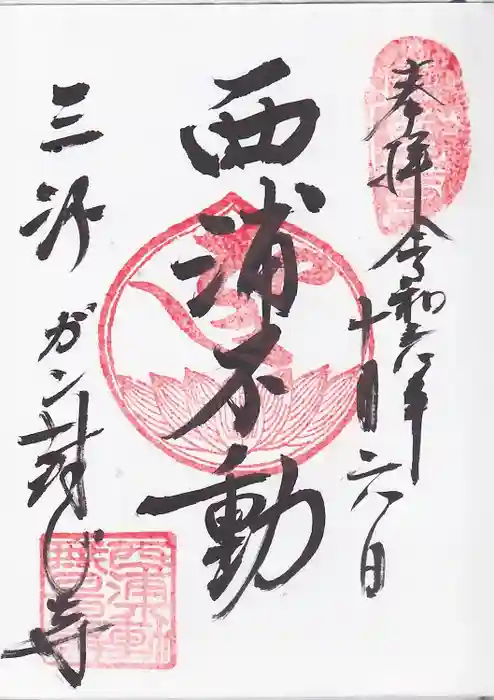 奉拝 令和六年
十月六日
西浦不動
三河 ガン封じ寺
西浦不動